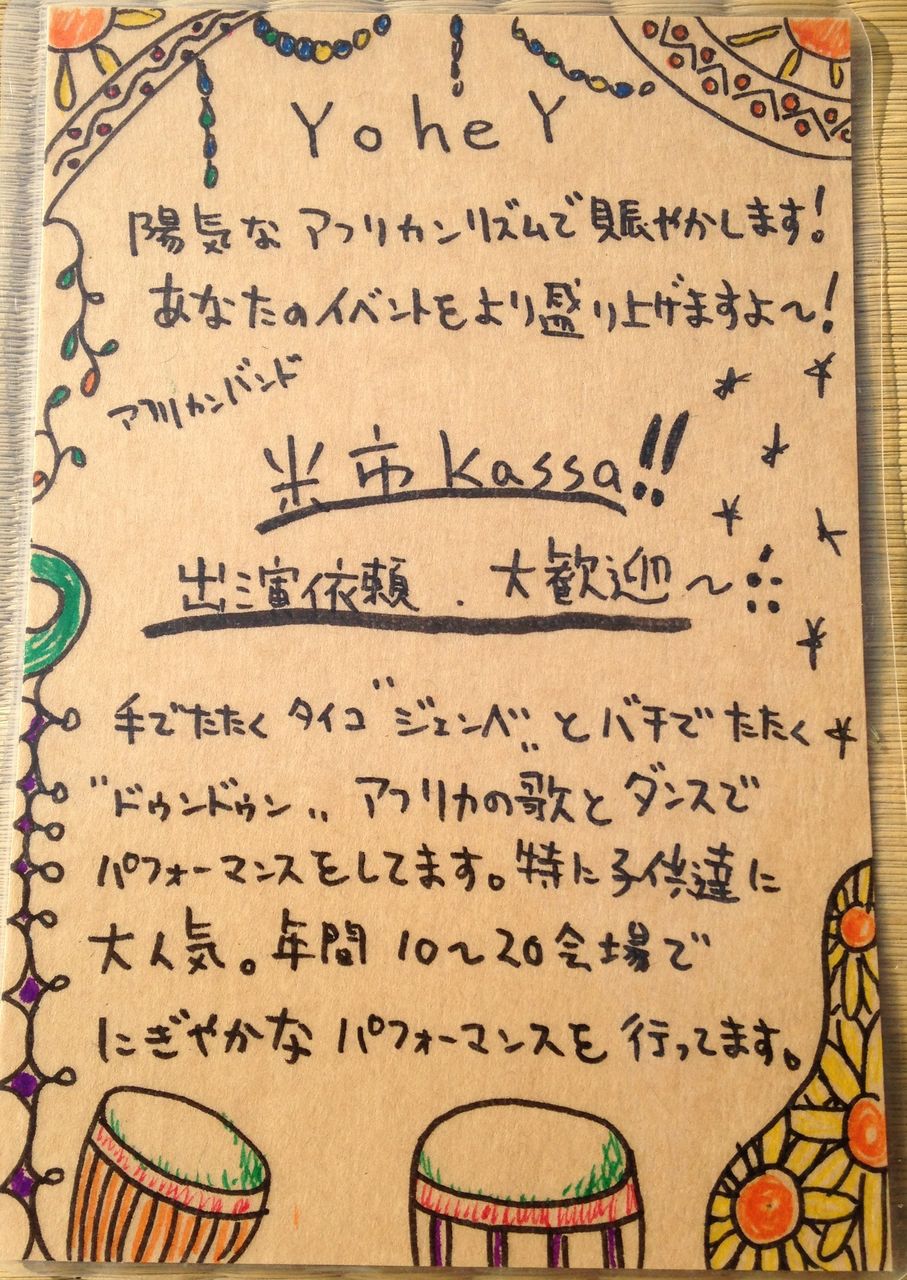 YoheY
陽気なアフリカンリズムで賑やかします!
あなたのイベントをより盛り上げますよ〜!
アフリカンバンド
米市kassa!!
出演依頼.大歓迎〜
手でたたくタイコ"ジェンベ"とバチでたたく
"ドゥンドゥン"アフリカの歌とダンスで
パフォーマンスをしてます。特に子供達に
大人気。年間10〜20会場で
にぎやかなパフォーマンスを行ってます。